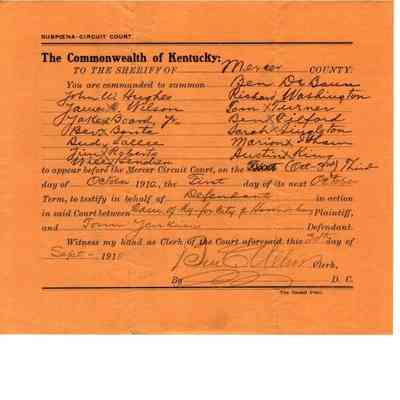 SUBPŒNA-CIRCUIT COURT
The Commonwealth of Kentucky:
TO THE SHERIFF OF Mercer COUNTY:
You are commanded to summon Ben De Baun
John W. Hughes Richard Washington
James Wilson Tom Turner
Jake Board, Jr. Ben Gilford
Ben Bonta Sarah Singleton
Bud Sallee Marion Isham
Jim Roberts Austin King
Wiley
to appear before the Mercer Circuit Court, on the (Oct-3rd) Third
day of October 1910, the First day of its next October
Term, to testify in behalf of Defendant in action
in said Court between of Ky. for City of Plaintiff,
and Tom Defendant.
Witness my hand as Clerk of the Court aforesaid, this day of
Sept - 1910
Clerk,
By D. C.